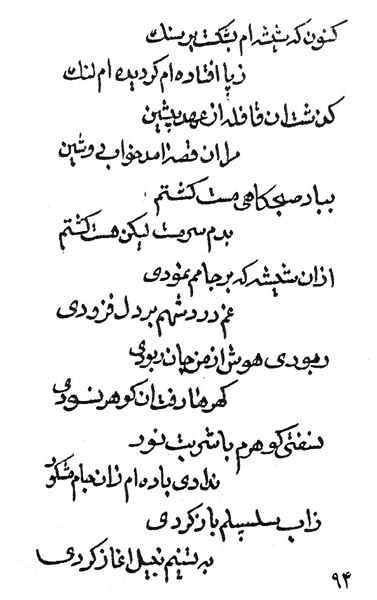 کنون که شیشه ام بشکست بر سنگ
ز پا افتاده ام کردیده ام لنگ
گذشت ان قافله از عهد پیشین
مرا ان قصه امد خواب دوشین
بباد صبحکاهی مست کشتم
بدم سرمست لیکن هست کشتم
ازان شیشه که بر جامم نمودی
غم درد شهم بر دل فزودی
ربودی هوش از من جان ربودی
کهرها رفت ان کوهر نسودی
نسفتی کوهرم با شربت نور
ندادی باده ام زان جام شکور
زاب سلسبیلم باز کردی
به تسنیم نبیل اغاز کردی
۹۴